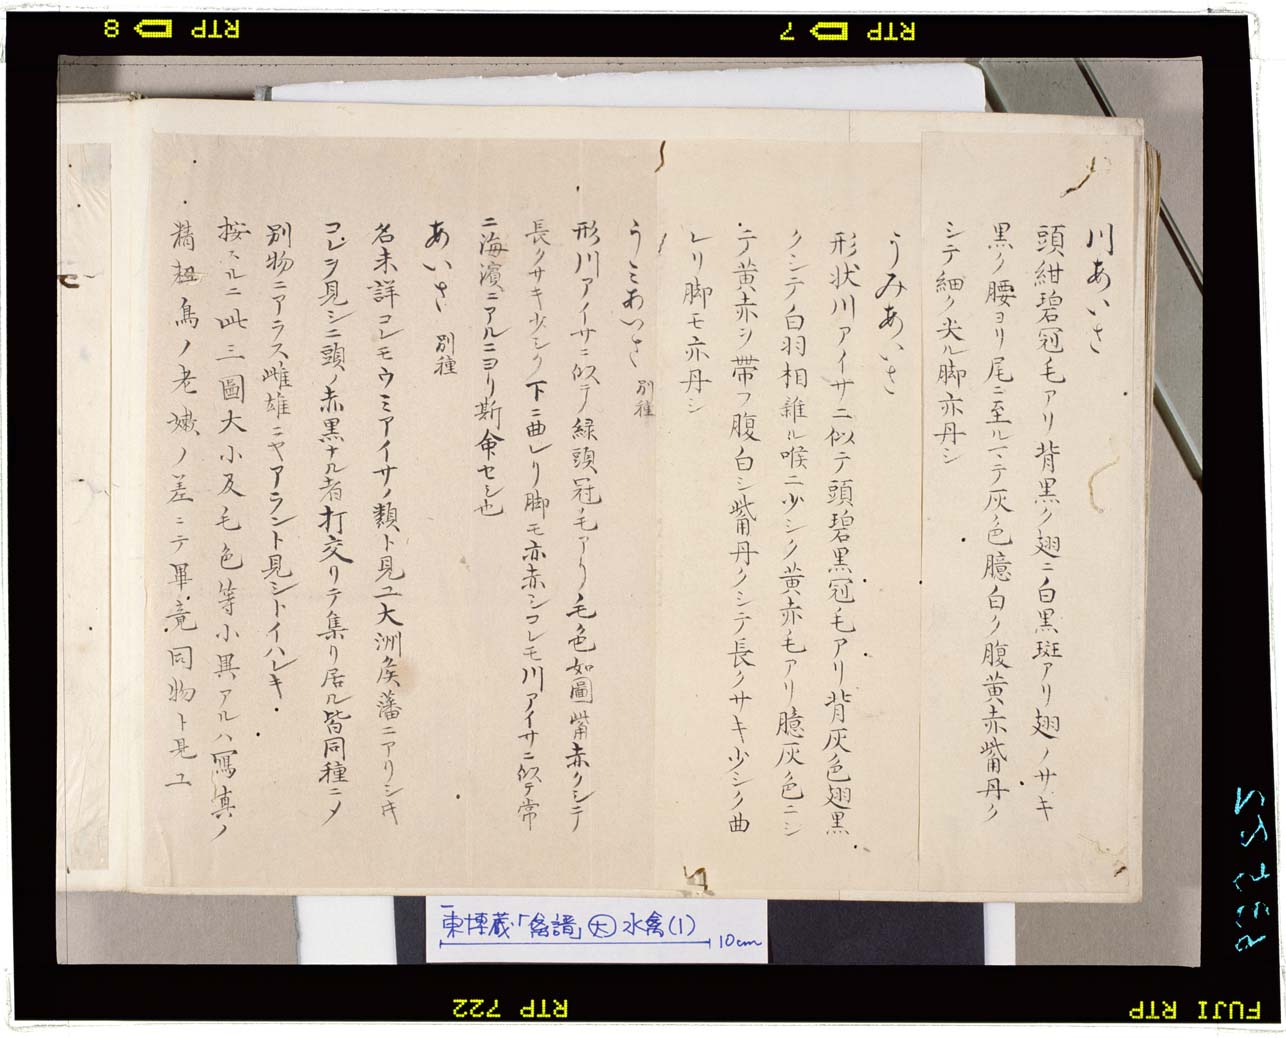 川あいさ
頭紺碧冠毛アリ背黒ク翅ニ白黒斑アリ翅ノサキ
黒ク腰ヨリ尾ニ至ルマテ灰色臆白ク腹黄赤觜丹ク
シテ細ク尖ル脚亦丹シ
うみあいさ
形状川アイサニ似テ頭碧黒冠毛アリ背灰色翅黒
クシテ白羽相雜ル喉ニ少シク黄赤毛アリ臆灰色ニシ
テ黄赤ヲ帶フ腹白シ觜丹クシテ長クサキ少シク曲
レリ脚モ亦丹シ
うみあいさ 別種
形川アイサニ似テ緑頭冠毛アリ毛色如圖觜赤クシテ
長クサキ少シク下ニ曲レリ脚モ亦赤シコレモ川アイサニ似テ常
ニ海濱ニアルニヨリ斯命セシ也
あいさ 別種
名未詳コレモウミアイサノ類ト見ユ大洲侯藩ニアリシキ
コレヲ見シニ頭ノ赤黒ナル者打交リテ集リ居ル皆同種ニメ
別物ニアラス雌雄ニヤアラント見シトイハレキ
按スルニ此三圖大小及毛色等小異アルハ寫真ノ
精粗鳥ノ老嫩ノ差ニテ畢竟同物ト見ユ
東博蔵「禽譜」大 水禽(1)
10cm
RTP 7
RTP 8
RTP 722
FUJI RTP